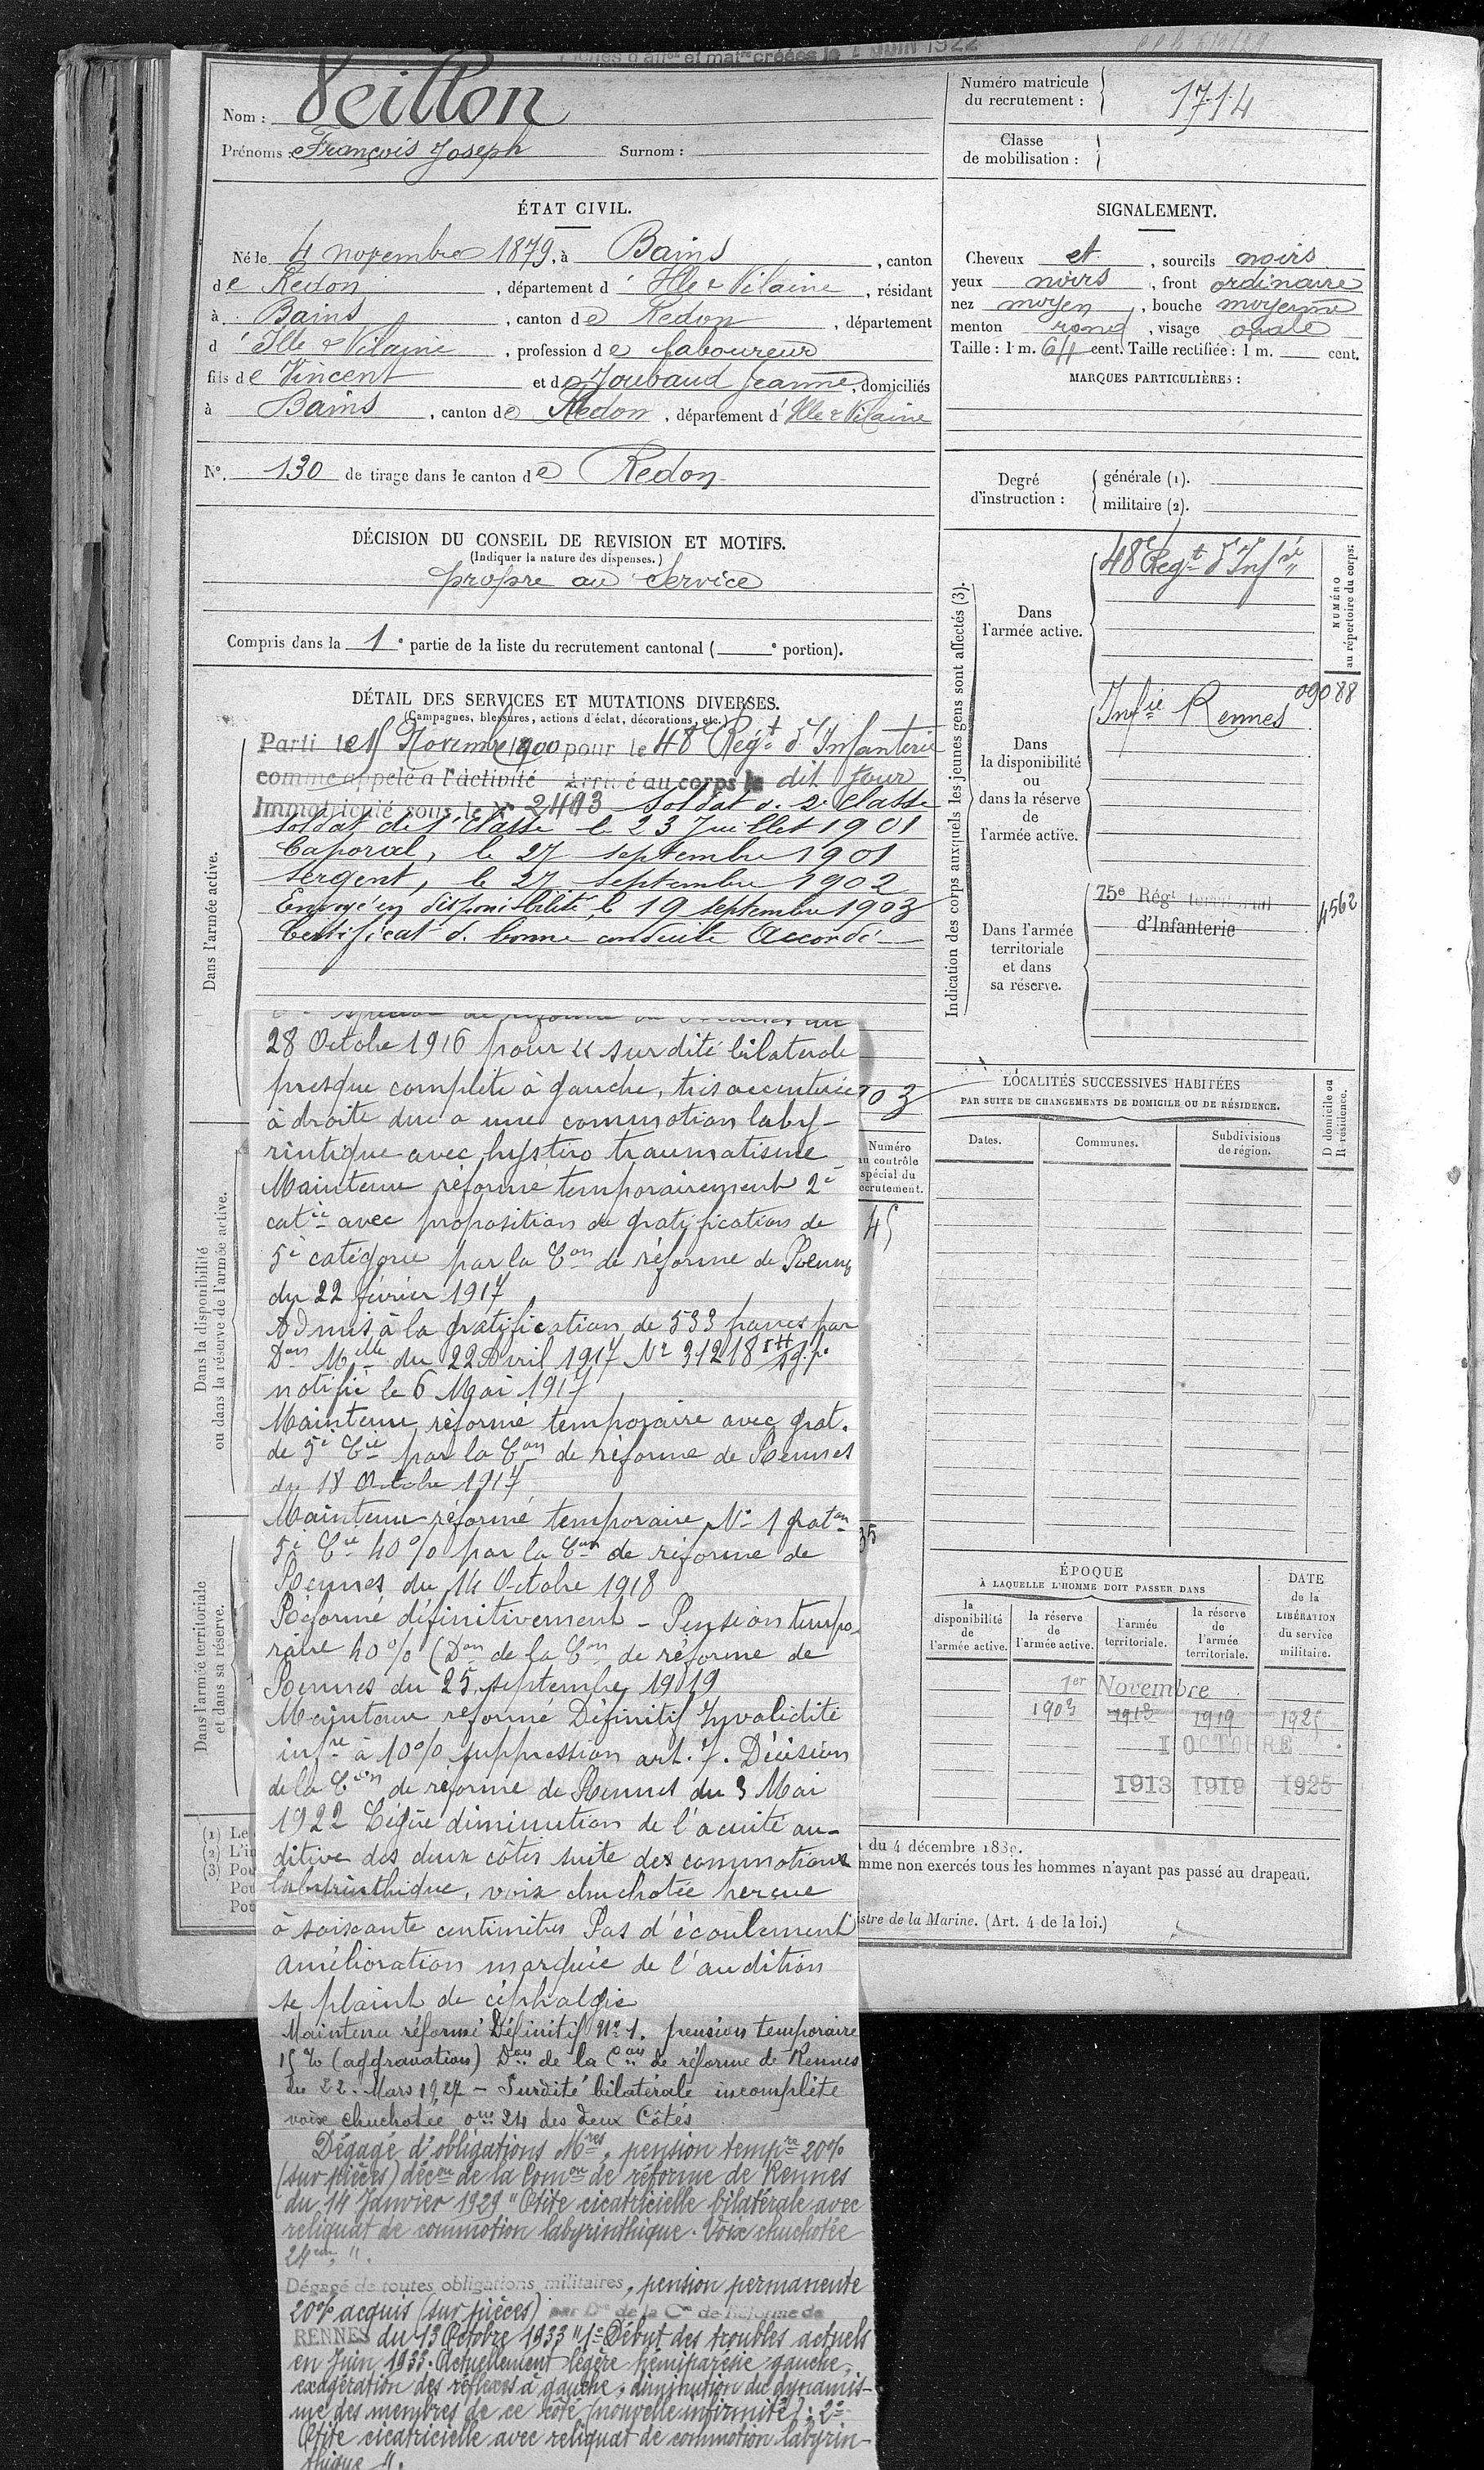 Fiches d'aff^on et mat^le créées le 1 JUIN 1922
Nom : Veillon
Prénoms : François Joseph Surnom :
Numéro matricule
du recrutement : 1714
Classe
de mobilisation :
ÉTAT CIVIL.
Né le 4 novembre 1879, à Bains, canton
de Redon, département d'Ille & Vilaine, résidant
à Bains, canton de Redon, département
d'Ille & Vilaine, profession de laboureur
fils de Vincent et de Joubaud Jeanne, domiciliés
à Bains, canton de Redon, département d'Ille & Vilaine
N°. 130 de tirage dans le canton de Redon
DÉCISION DU CONSEIL DE REVISION ET MOTIFS.
(Indiquer la nature des dispenses.)
propre au Service
Compris dans la 1e partie de la liste du recrutement cantonal ( e portion).
SIGNALEMENT.
Cheveux et, sourcils noirs
yeux noirs, front ordinaire
nez moyen, bouche moyenne
menton rond, visage ovale
Taille : 1 m. 64 cent. Taille rectifiée : 1 m. cent.
MARQUES PARTICULIÈRES :
Degré
d'instruction :
générale (1).
militaire (2).
Indication des corps auxquels les jeunes gens sont affectés (3).
NUMÉRO
au répertoire du corps:
Dans
l'armée active.
48e Régt d'Infie
Dans
la disponibilité
ou
dans la réserve
de
l'armée active.
Infie Rennes 09088
Dans l'armée
territoriale
et dans
sa réserve.
75e Régt territorial
d'Infanterie
4562
DÉTAIL DES SERVICES ET MUTATIONS DIVERSES.
(Campagnes, blessures, actions d'éclat, décorations, etc.)
Dans l'armée active.
Parti le 15 Novembre 1900 pour le 48e Régt d'Infanterie
comme appelé à l'activité Arrivé au corps le dit jour
Immatriculé sous le N° 2493 Soldat de 2e Classe
Soldat de 1e Classe le 23 Juillet 1901
Caporal, le 27 septembre 1901
Sergent, le 27 septembre 1902
Envoyé en disponibilité le 19 septembre 1903
Certificat de bonne conduite Accordé
28 Octobre 1916 pour « surdité bilatérale
presque complète à gauche, très accentuée
à droite due à une commotion laby-
rintique avec hystéro traumatisme
Maintenu réformé temporairement 2e
catie avec proposition de gratification de
5e catégorie par la Con de réforme de Rennes
du 22 février 1917
Admis à la gratification de 533 francs par
Don Mlle du 22 Avril 1917 N° 31218
notifié le 6 Mai 1917
Maintenu réformé temporaire avec grat.
de 5e Cie par la Con de réforme de Rennes
du 18 Octobre 1917
Maintenu réformé temporaire N° 1 graton
5e Cie 40% par la Con de réforme de
Rennes du 14 Octobre 1918
Réformé définitivement - Pension tempo-
raire 40% (Don de la Con de réforme de
Rennes du 25 septembre 1919
Maintenu réformé Définitif Invalidité
infre à 10% suppression art. 7. Décision
de la Con de réforme de Rennes du 3 Mai
1922 Légère diminution de l'acuité au-
ditive des deux côtés suite des commotions
labyrinthique, voix chuchotée percue
à soixante centimètres Pas d'écoulement
amélioration marquée de l'audition
se plaint de céphalgie
Maintenu réformé Définitif N° 1. pension temporaire
15% (aggravation) Don de la Con de réforme de Rennes
du 22 Mars 1927 - Surdité bilatérale incomplète
voix chuchotée 0m 24 des deux Côtés
Dégagé d'obligations Mres, pension tempre 20%
(sur pièces) décon de la Comon de réforme de Rennes
du 14 Janvier 1929 "Otite cicatricielle bilatérale avec
reliquat de commotion labyrinthique. Voix chuchotée
24cm".
Dégagé de toutes obligations militaires, pension permanente
20% acquis (sur pièces) par Don de la Con de Réforme de
RENNES du 13 Octobre 1933 "1° Début des troubles actuels
en Juin 1933. Actuellement légère hémiparésie gauche,
exagération des réflexes à gauche, diminution du dynamis-
me des membres de ce côté (nouvelle infirmité) : 2°
Otite cicatricielle avec reliquat de commotion labyrin-
thique".
Dans la disponibilité
ou dans la réserve de l'armée active.
Dans l'armée territoriale
et dans sa réserve.
03
Numéro
au contrôle
spécial du
recrutement.
45
35
LOCALITÉS SUCCESSIVES HABITÉES
PAR SUITE DE CHANGEMENTS DE DOMICILE OU DE RÉSIDENCE.
D domicile ou
R résidence.
Dates. Communes. Subdivisions
de région.
ÉPOQUE
À LAQUELLE L'HOMME DOIT PASSER DANS
DATE
de la
LIBÉRATION
du service
militaire.
la
disponibilité
de
l'armée active.
la réserve
de
l'armée active.
l'armée
territoriale.
la réserve
de
l'armée
territoriale.
1er Novembre
1903 1913 1919 1925
1 OCTOBRE
1913 1919 1925
(1) Le
(2) L'in
(3) Pou
Pou
Pou
du 4 décembre 1889.
mme non exercés tous les hommes n'ayant pas passé au drapeau.
istre de la Marine. (Art. 4 de la loi.)